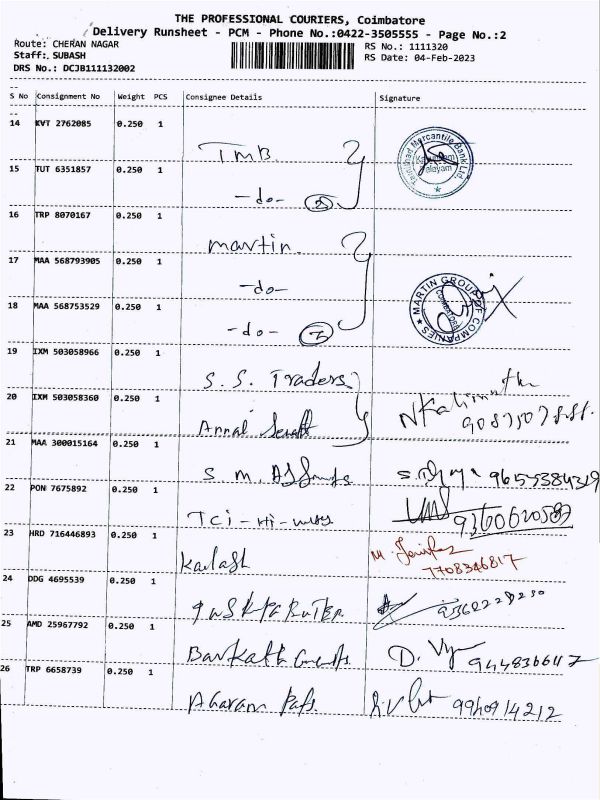 THE PROFESSIONAL COURIERS, Coimbatore
Delivery Runsheet - PCM - Phone No.:0422-3505555 - Page No.:2
Route: CHERAN NAGAR RS No.: 1111320
Staff: SUBASH RS Date: 04-Feb-2023
DRS No.: DCJB111132002
S No Consignment No Weight PCS Consignee Details Signature
14 KVT 2762085 0.250 1 TMB
Tamilnad Mercantile Bank Ltd.
15 TUT 6351857 0.250 1 -do- 2
16 TRP 8070167 0.250 1 martin.
17 MAA 568793905 0.250 1 -do-
MARTIN GROUP OF COMPANIES
COIMBATORE
18 MAA 568753529 0.250 1 -do-
19 IXM 503058966 0.250 1 S.S. Traders
20 IXM 503058360 0.250 1 Annal
21 MAA 300015164 0.250 1 S.M. 9655384319
22 PON 7675892 0.250 1 TCi-Hi-ways 9360620583
23 HRD 716446893 0.250 1 Kailash M. 7708346817
24 DDG 4695539 0.250 1
25 AMD 25967792 0.250 1 Barkath D. 9448366117
26 TRP 6658739 0.250 1 Aharam 9940914212